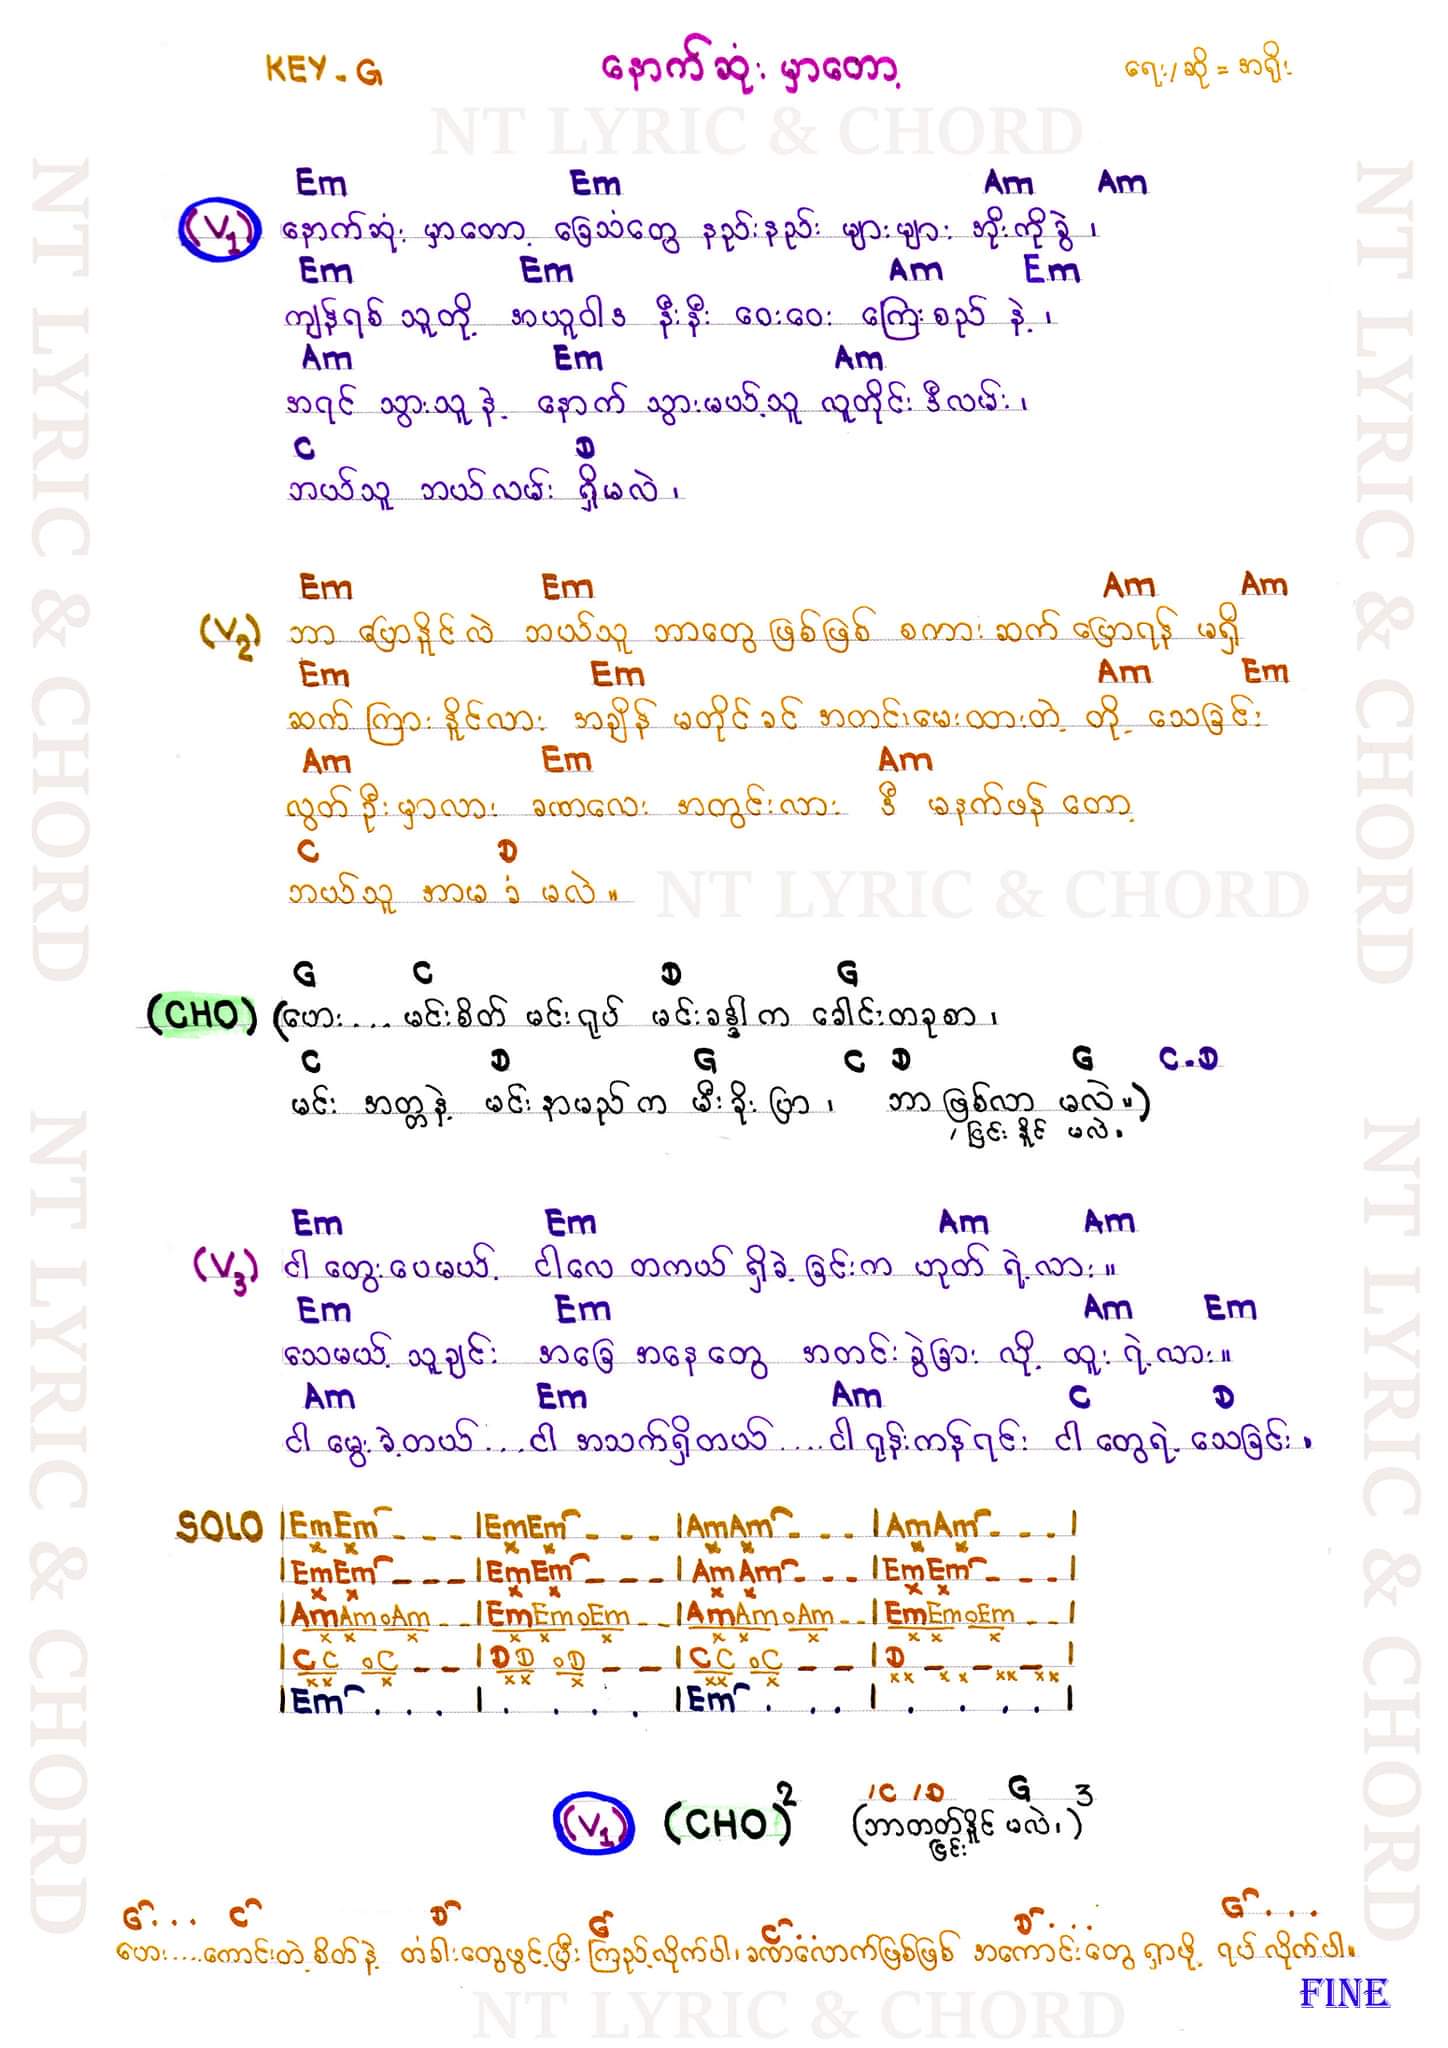 KEY - G နောက်ဆုံးမှာတော့ ရေး/ဆို = အရိုး
NT LYRIC & CHORD
Em Em Am Am
(V1) နောက်ဆုံးမှာတော့ ခြေသံတွေ နည်းနည်း များများ အိုးကိုခွဲ၊
Em Em Am Em
ကျန်ရစ်သူတို့ အယူဝါဒ နီးနီး ဝေးဝေး ကြေးစည် နဲ့၊
Am Em Am
အရင် သွားသူနဲ့ နောက် သွားမယ့်သူ လူတိုင်း ဒီလမ်း၊
C D
ဘယ်သူ ဘယ်လမ်း ရှိမလဲ၊
Em Em Am Am
(V2) ဘာ ပြောနိူင်လဲ ဘယ်သူ ဘာတွေဖြစ်ဖြစ် စကားဆက်ပြောရန် မရှိ
Em Em Am Em
ဆက်ကြားနိူင်လား အချိန် မတိုင်ခင် အတင်းမေးထားတဲ့ တို့ သေခြင်း
Am Em Am
လွတ်ဦးမှာလား ခဏလေး အတွင်းလား ဒီ မနက်ဖန်တော့
C D
ဘယ်သူ အာမခံ မလဲ။
NT LYRIC & CHORD
G C D G
(CHO) (ဟေး.... မင်းစိတ် မင်းရုပ် မင်းခန္ဒါက ခေါင်းတခုစာ၊
C D G C D G C-D
မင်း အတ္တနဲ့ မင်းနာမည်က မီးခိုးပြာ၊ ဘာဖြစ်လာ မလဲ။)
/ငြင်းနိူင် မလဲ။
Em Em Am Am
(V3) ငါတွေးပေမယ့် ငါလေ တကယ်ရှိခဲ့ခြင်းက ဟုတ်ရဲ့လား။
Em Em Am Em
သေမယ့်သူချင်း အခြေအနေတွေ အတင်းခွဲခြားလို့ ထူးရဲ့လား။
Am Em Am C D
ငါမွေးခဲ့တယ်....ငါ အသက်ရှိတယ်....ငါရုန်းကန်ရင်း ငါတွေ့ရဲ့ သေခြင်း။
SOLO |EmEm - - - |EmEm - - - |AmAm - - - |AmAm - - - |
|EmEm - - - |EmEm - - - |AmAm - - - |EmEm - - - |
|AmAmoAm - - |EmEmoEm - - |AmAmoAm - - |EmEmoEm - - |
|CC oC - - |DD oD - - |CC oC - - |D - - - |
|Em . . . | . . . . |Em . . . | . . . . |
/C /D G
(V1) (CHO)2 (ဘာတတ်နိူင် မလဲ၊)3
ငြင်း
G... C D G C... D.... G....
ဟေး....ကောင်းတဲ့စိတ်နဲ့ တံခါးတွေဖွင့်ပြီးကြည့်လိုက်ပါ၊ ခဏလောက်ဖြစ်ဖြစ် အကောင်းတွေရှာဖို့ ရပ်လိုက်ပါ။
FINE
NT LYRIC & CHORD
NT LYRIC & CHORD
NT LYRIC & CHORD
NT LYRIC & CHORD
NT LYRIC & CHORD